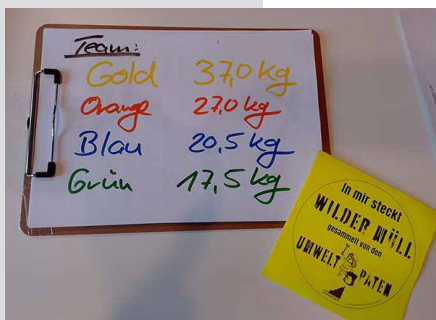 Team:
Gold 37,0 kg
Orange 27,0 kg
Blau 20,5 kg
Grün 17,5 kg
In mir steckt
WILDER MÜLL
gesammelt von den
UMWELT PATEN